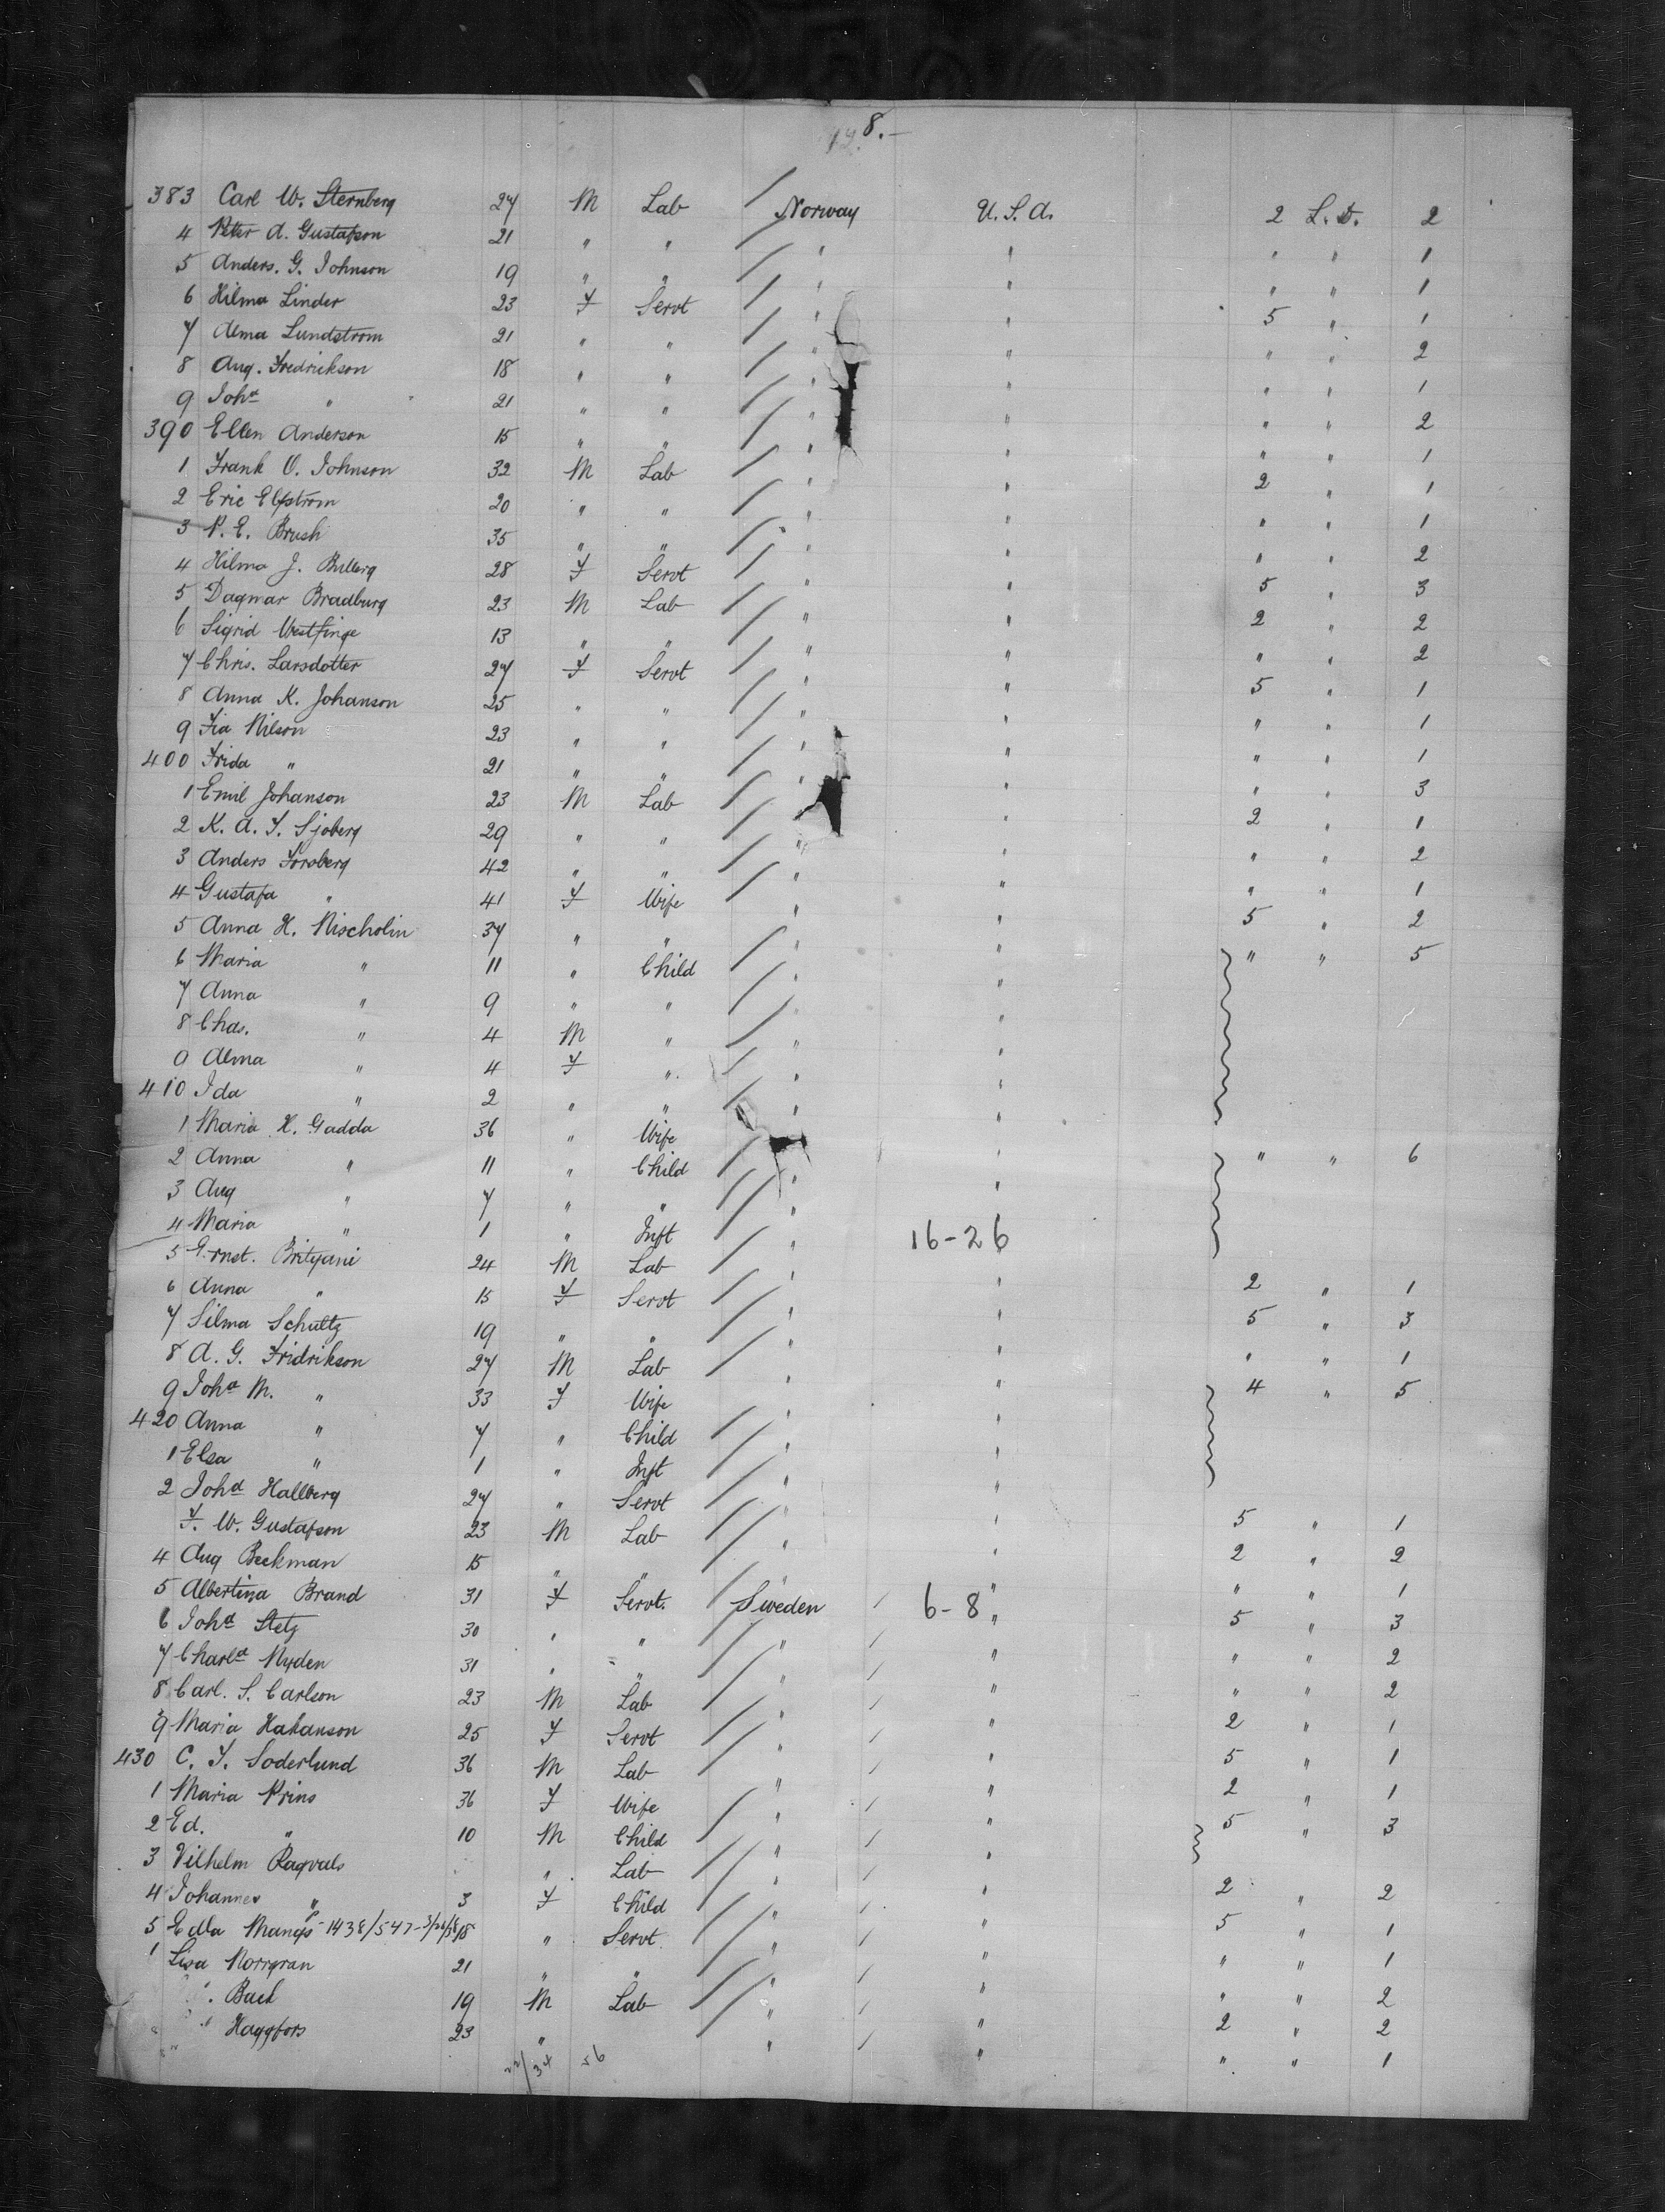 8.—
383 Carl W. Sternberg 27 M Lab / Norway U. S. A. 2 L. D. 2
4 Peter A. Gustafson 21 " " / " " " " 1
5 Anders. G. Johnson 19 " " / " " " " 1
6 Hilma Linder 23 F Servt / " " 5 " 1
7 Alma Lundstrom 21 " " / " " " " 2
8 Aug. Fredrickson 18 " " / " " " " 1
9 Joha " 21 " " / " " " " 2
390 Ellen Anderson 15 " " / " " " " 1
1 Frank O. Johnson 32 M Lab / " " 2 " 1
2 Eric Elfstrom 20 " " / " " " " 1
3 P. E. Brush 35 " " / " " " " 2
4 Hilma J. Bullerg 28 F Servt / " " 5 " 3
5 Dagmar Bradburg 23 M Lab / " " 2 " 2
6 Sigrid Westfinge 13 " " / " " " " 2
7 Chris. Larsdotter 27 F Servt / " " 5 " 1
8 Anna K. Johanson 25 " " / " " " " 1
9 Fia Nilson 23 " " / " " " " 1
400 Frida " 21 " " / " " " " 3
1 Emil Johanson 23 M Lab / " " 2 " 1
2 K. A. F. Sjoberg 29 " " / " " " " 2
3 Anders Forsberg 42 " " / " " " " 1
4 Gustafa " 41 F Wife " " 5 " 2
5 Anna H. Nischolin 37 " " / " " " " 5
6 Maria " 11 " Child / " "
7 Anna " 9 " " / " "
8 Chas. " 4 M " / " "
9 Alma " 4 F " / " "
410 Ida " 2 " " / " "
1 Maria H. Gadda 36 " Wife " " " " 6
2 Anna " 11 " Child / " "
3 Aug " 7 " " / " "
4 Maria " 1 " Inft / " 16-26
5 Ernst. Brityani 24 M Lab / " " 2 " 1
6 Anna " 15 F Servt / " " 5 " 3
7 Silma Schultz 19 " " / " " " " 1
8 A. G. Fridrikson 27 M Lab / " " 4 " 5
9 Joha M. " 33 F Wife " "
420 Anna " 7 " Child / " "
1 Elsa " 1 " Inft / " "
2 Joha Hallberg 27 " Servt / " " 5 " 1
F. W. Gustafson 23 M Lab / " " 2 " 2
4 Aug Beckman 15 " " / " " " " 1
5 Albertina Brand 31 F Servt. Sweden / 6-8 " 5 " 3
6 Joha Stetz 30 " " / " / " " " 2
7 Charla Nyden 31 " " / " / " " " 2
8 Carl. S. Carlson 23 M Lab / " / " 2 " 1
9 Maria Hakanson 25 F Servt / " / " 5 " 1
430 C. F. Soderlund 36 M Lab / " / " 2 " 1
1 Maria Prins 36 F Wife " / " 5 " 3
2 Ed. " 10 M Child / " / "
3 Vilhelm Ragvals " Lab / " / " 2 " 2
4 Johannes " 3 F Child / " / " 5 " 1
5 Edla Mangs - 1438/547 - 3/26/58 18 " Servt / " / " " " 1
1 Lisa Norrgran 21 " " / " / " " " 2
Back 19 M Lab / " / " 2 " 2
Haggfors 23 " " / " " " 1
22/34 56